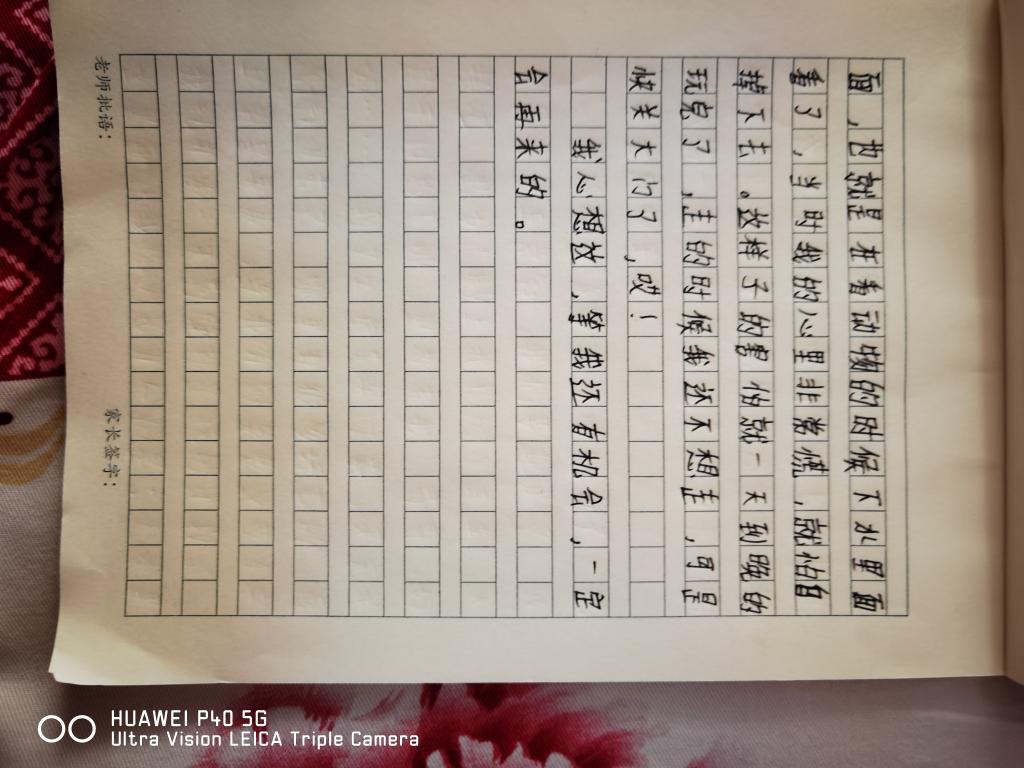 面,也就是在看动物的时候下水里面
看了,当时我的心里非常慌,就怕自
掉下去。这样子的害怕就一天到晚的
玩完了,走的时候我还不想走,可是
快关大门了,哎!
我心想这,等我还有机会,一定
会再来的。
老师批语:
家长签字:
HUAWEI P40 5G
Ultra Vision LEICA Triple Camera